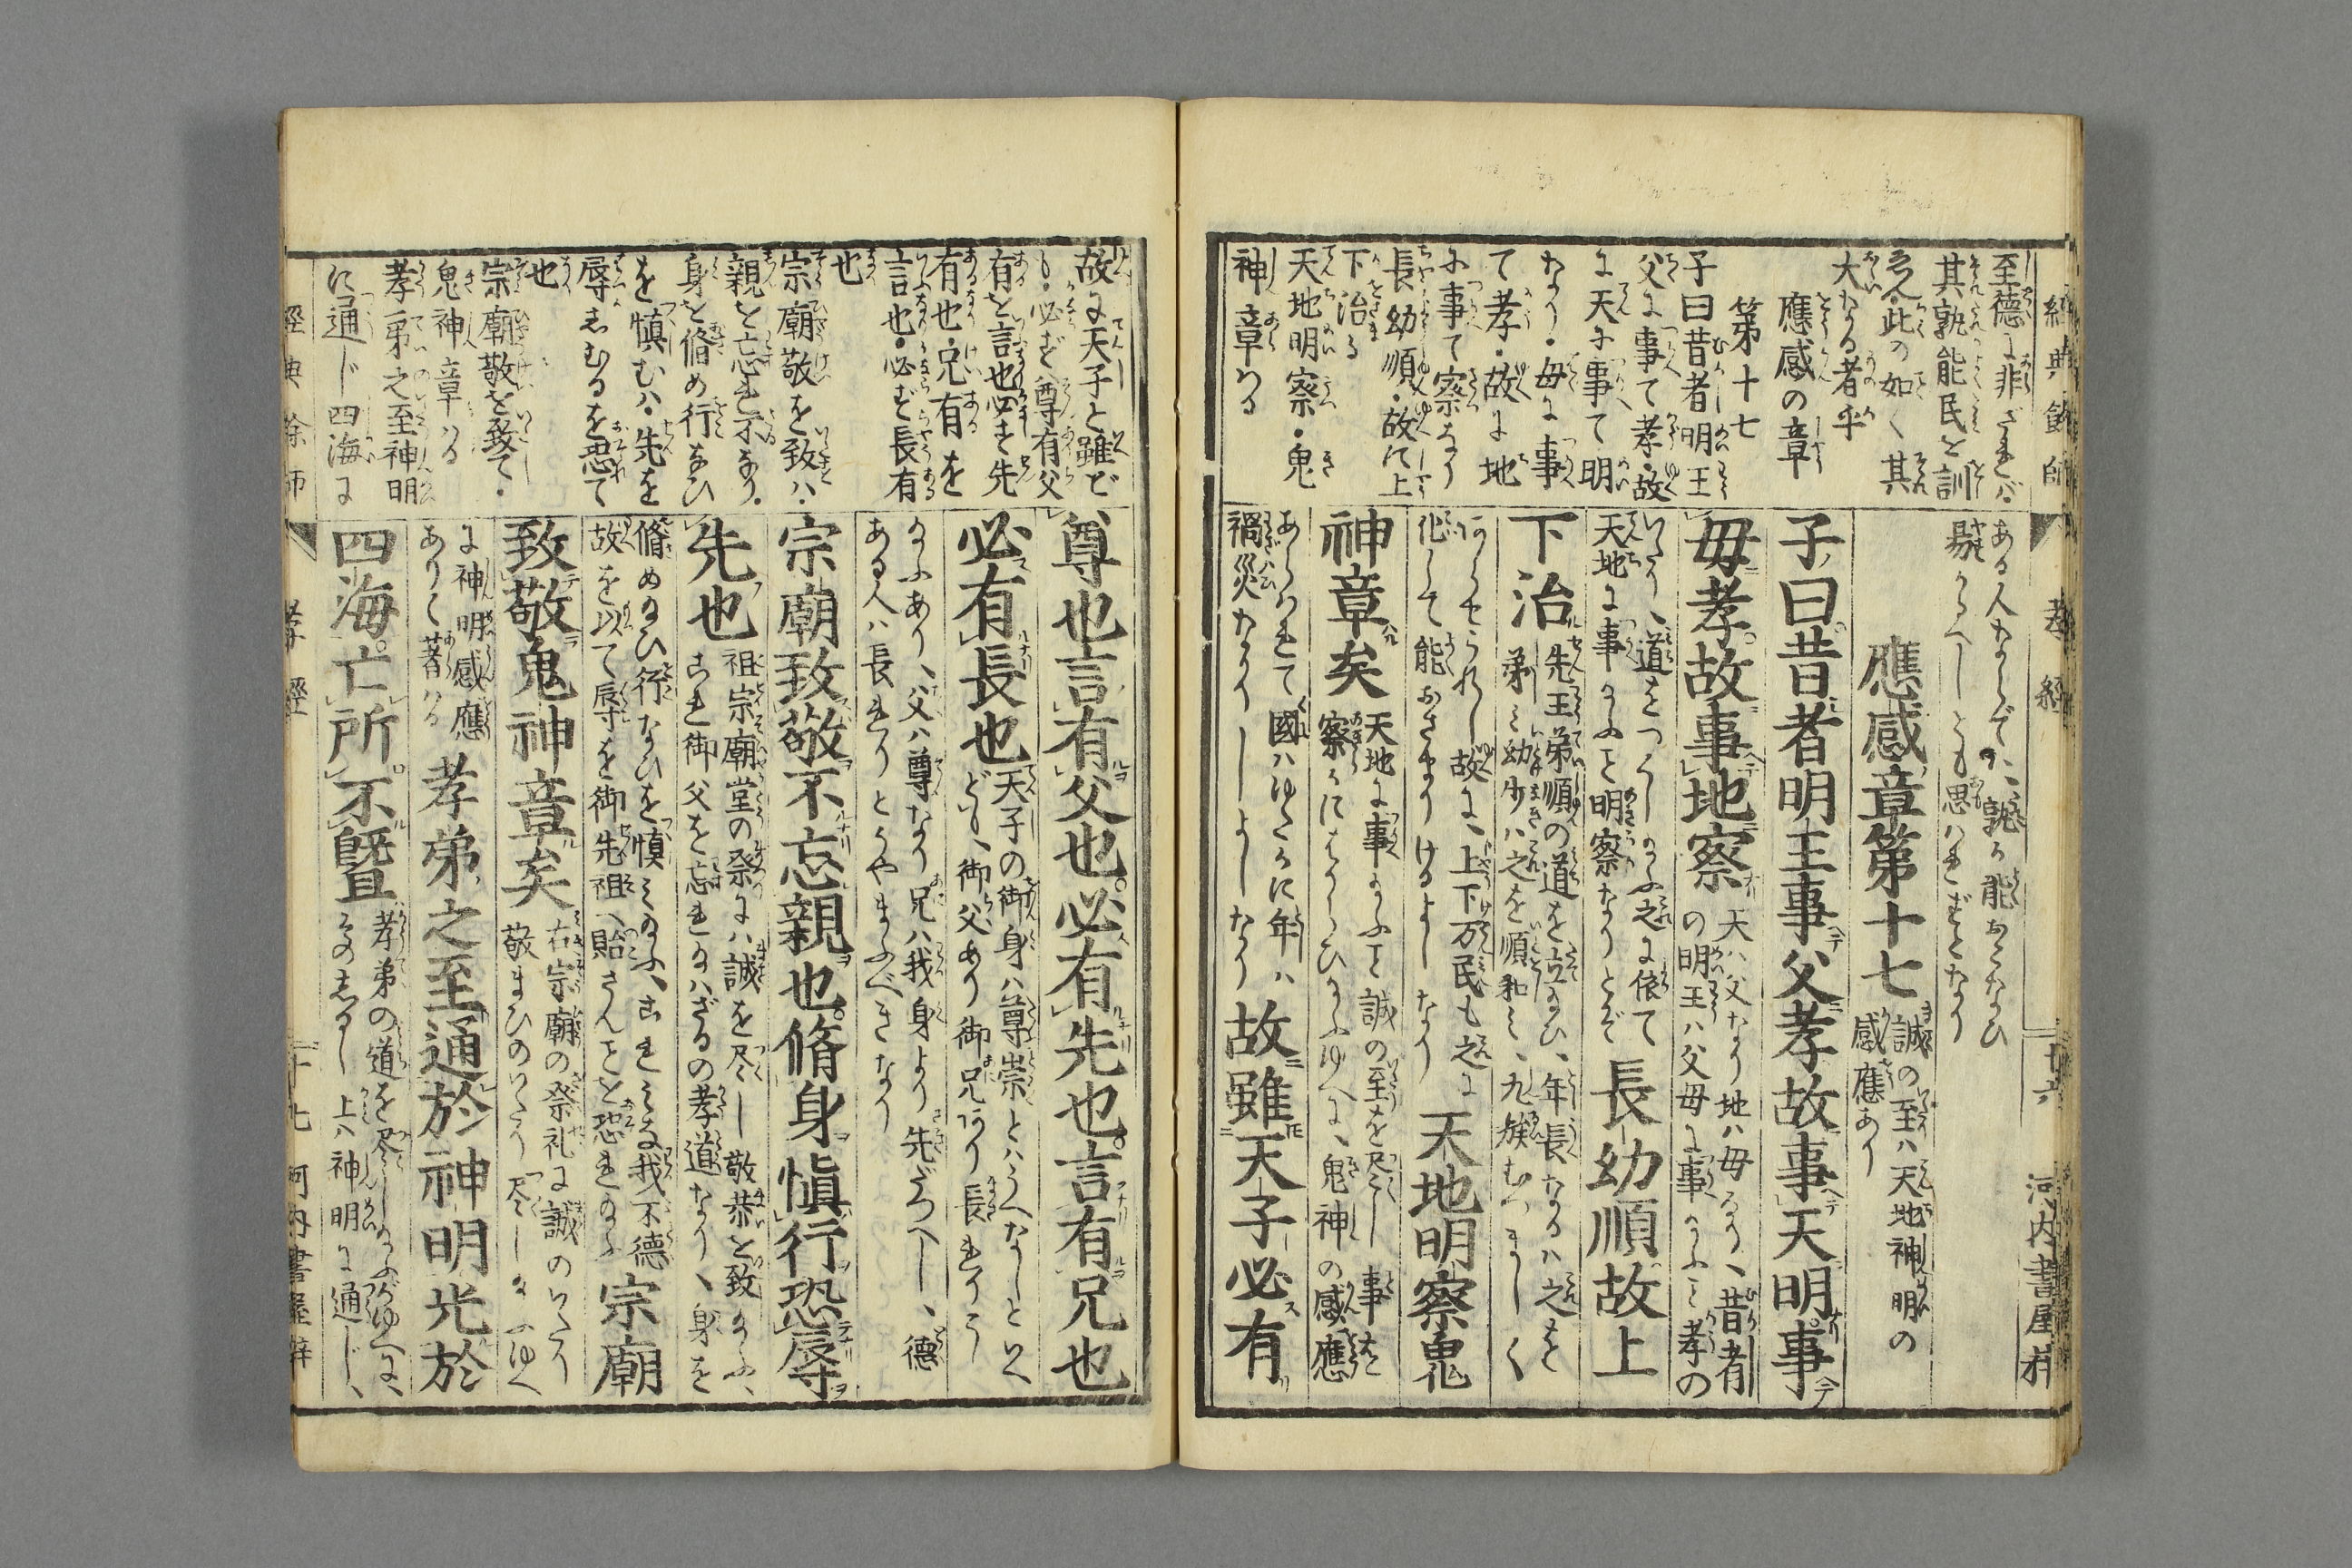 經典餘師
孝經
廿六
河内書屋
至徳に非ざれば・
其孰能民を訓
こと・此の如く其
大なる者乎
應感の章
第十七
子曰昔者明王
父に事て孝・故
に天に事て明
なり・母に事
て孝・故に地
に事て察なり
長幼順・故に上
下治る
天地明察・鬼
神章はる
ある人ならでハ、孰か能おこなひ
易かるべしとも思はれずとなり
應感章第十七
誠の至ハ天地神明の
感應あり
子曰昔者明王事父孝故事天明事
母孝故事地察
天ハ父なり地ハ母なり、昔者
の明王ハ父母に事たまふこと孝の
いたり、道をつくしたまふ之に依て
天地に事たまふこと明察なりとぞ
長幼順故上
下治
先王弟順の道を立たまひ、年長なるハ之を
弟み幼少ハ之を順和み、九族むつまじく
わたらせられし故に、上下万民も之に
化して能おさまりけるよしなり
天地明察鬼
神章矣
天地に事たまふこと誠の至を尽し事を
察かにはからひたまふゆへに、鬼神の感應
あらハれて國ハゆたかに年ハ
禍災なかりしよしなり
故雖天子必有
故に天子と雖ど
も・必ず尊有父
有を言也必ず先
有也・兄有を
言也・必ず長有
也
宗廟敬を致ハ・
親を忘れ不なり・
身を脩め行なひ
を慎むハ・先を
辱しむるを恐て
也
宗廟敬を致て・
鬼神章はる
孝弟之至神明
に通じ四海に
尊也言有父也必有先也言有兄也
必有長也
天子の御身ハ尊崇とハうへなしといへ
ども、御父あり御兄あり長れり
たまふあり、父ハ尊なり兄ハ我身より先だつべし、徳
ある人ハ長れりとうやまふべきなり
宗廟致敬不忘親也脩身愼行恐辱
先也
祖宗廟堂の祭にハ誠を尽し敬恭を致たまふ、
これ御父を忘れたまハざるの孝道なり、身を
脩めたまひ行なひを慎みたまふ、これみな我不徳
故を以て辱を御先祖へ貽さんことを恐れたまふ
宗廟
致敬鬼神章矣
右宗廟の祭礼に誠のいたり
敬まひのいたり尽したまふゆへ
に神明感應
ありて著はる
孝弟之至通於神明光於
四海亡所不曁
孝弟の道を尽したまふがゆへに、
そのしるし上ハ神明に通じ、
經典餘師
孝經
二十七
河内書屋梓